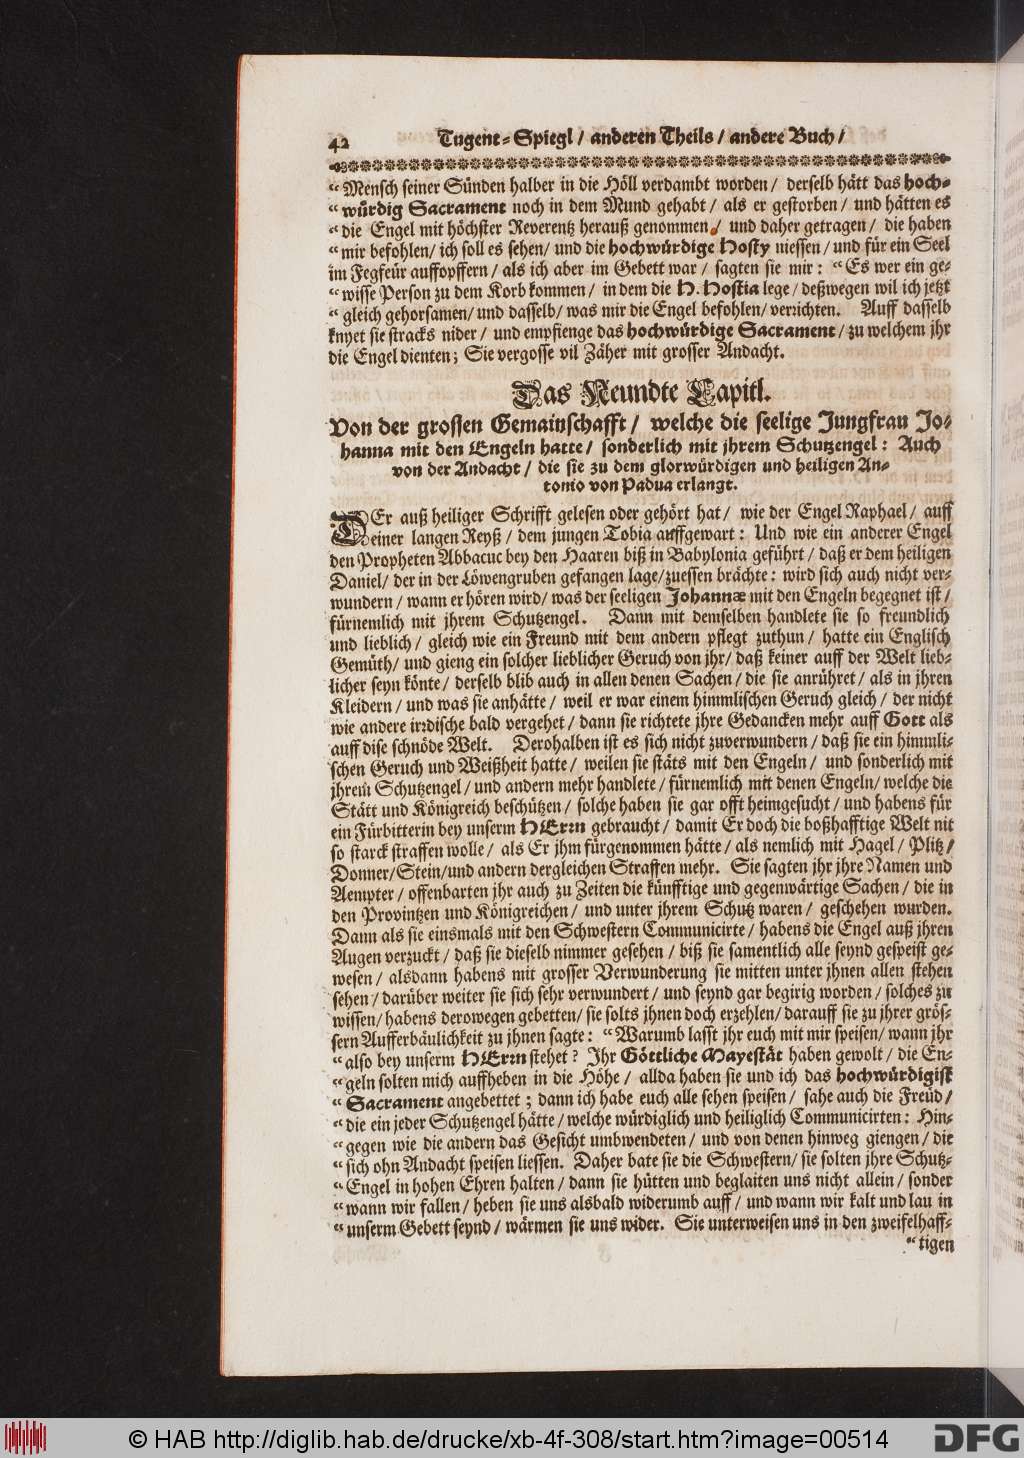 42 Tugent-Spiegl / anderen Theils / andere Buch /
“ Mensch seiner Sünden halber in die Höll verdambt worden / derselb hätt das hoch-
“ würdig Sacrament noch in dem Mund gehabt / als er gestorben / und hätten es
“ die Engel mit höchster Reverentz herauß genommen / und daher getragen / die haben
“ mir befohlen / ich soll es sehen / und die hochwürdige Hosty niessen / und für ein Seel
im Fegfeür auffopffern / als ich aber im Gebett war / sagten sie mir : “ Es wer ein ge-
“ wisse Person zu dem Korb kommen / in dem die H. Hostia lege / deßwegen wil ich jetzt
“ gleich gehorsamen / und dasselb / was mir die Engel befohlen / verrichten. Auff dasselb
knyet sie stracks nider / und empfienge das hochwürdige Sacrament / zu welchem jhr
die Engel dienten ; Sie vergosse vil Zäher mit grosser Andacht.
Das Neundte Capitl.
Von der grossen Gemainschafft / welche die seelige Jungfrau Jo-
hanna mit den Engeln hatte / sonderlich mit jhrem Schutzengel : Auch
von der Andacht / die sie zu dem glorwürdigen und heiligen An-
tonio von Padua erlangt.
DEr auß heiliger Schrifft gelesen oder gehört hat / wie der Engel Raphael / auff
einer langen Reyß / dem jungen Tobia auffgewart : Und wie ein anderer Engel
den Propheten Abbacuc bey den Haaren biß in Babylonia geführt / daß er dem heiligen
Daniel / der in der Löwengruben gefangen lage / zuessen brächte : wird sich auch nicht ver-
wundern / wann er hören wird / was der seeligen Johannæ mit den Engeln begegnet ist /
fürnemlich mit jhrem Schutzengel. Dann mit demselben handlete sie so freundlich
und lieblich / gleich wie ein Freund mit dem andern pflegt zuthun / hatte ein Englisch
Gemüth / und gieng ein solcher lieblicher Geruch von jhr / daß keiner auff der Welt lieb-
licher seyn könte / derselb blib auch in allen denen Sachen / die sie anrühret / als in jhren
Kleidern / und was sie anhätte / weil er war einem himmlischen Geruch gleich / der nicht
wie andere irrdische bald vergehet / dann sie richtete jhre Gedancken mehr auff Gott als
auff dise schnöde Welt. Derohalben ist es sich nicht zuverwundern / daß sie ein himmli-
schen Geruch und Weißheit hatte / weilen sie stäts mit den Engeln / und sonderlich mit
jhrem Schutzengel / und andern mehr handlete / fürnemlich mit denen Engeln / welche die
Stätt und Königreich beschützen / solche haben sie gar offt heimgesucht / und habens für
ein Fürbitterin bey unserm HErrn gebraucht / damit Er doch die boßhafftige Welt nit
so starck straffen wolle / als Er jhm fürgenommen hätte / als nemlich mit Hagel / Plitz /
Donner / Stein / und andern dergleichen Straffen mehr. Sie sagten jhr jhre Namen und
Aempter / offenbarten jhr auch zu Zeiten die künfftige und gegenwärtige Sachen / die in
den Provintzen und Königreichen / und unter jhrem Schutz waren / geschehen wurden.
Dann als sie einsmals mit den Schwestern Communicirte / habens die Engel auß jhren
Augen verzuckt / daß sie dieselb nimmer gesehen / biß sie samentlich alle seynd gespeist ge-
wesen / alsdann habens mit grosser Verwunderung sie mitten unter jhnen allen stehen
sehen / darüber weiter sie sich sehr verwundert / und seynd gar begirig worden / solches zu
wissen / habens derowegen gebetten / sie solts jhnen doch erzehlen / darauff sie zu jhrer grös-
sern Aufferbäulichkeit zu jhnen sagte : “ Warumb lasst jhr euch mit mir speisen / wann jhr
“ also bey unserm HErrn stehet ? Ihr Göttliche Mayestät haben gewolt / die En-
“ geln solten mich auffheben in die Höhe / allda haben sie und ich das hochwürdigist
“ Sacrament angebettet ; dann ich habe euch alle sehen speisen / sahe auch die Freüd /
“ die ein jeder Schutzengel hätte / welche würdiglich und heiliglich Communicirten : Hin-
“ gegen wie die andern das Gesicht umbwendeten / und von denen hinweg giengen / die
“ sich ohn Andacht speisen liessen. Daher bate sie die Schwestern / sie solten jhre Schutz-
“ Engel in hohen Ehren halten / dann sie hütten und beglaiten uns nicht allein / sonder
“ wann wir fallen / heben sie uns alsbald widerumb auff / und wann wir kalt und lau in
“ unserm Gebett seynd / wärmen sie uns wider. Sie unterweisen uns in den zweifelhaff-
“ tigen
© HAB http://diglib.hab.de/drucke/xb-4f-308/start.htm?image=00514
DFG